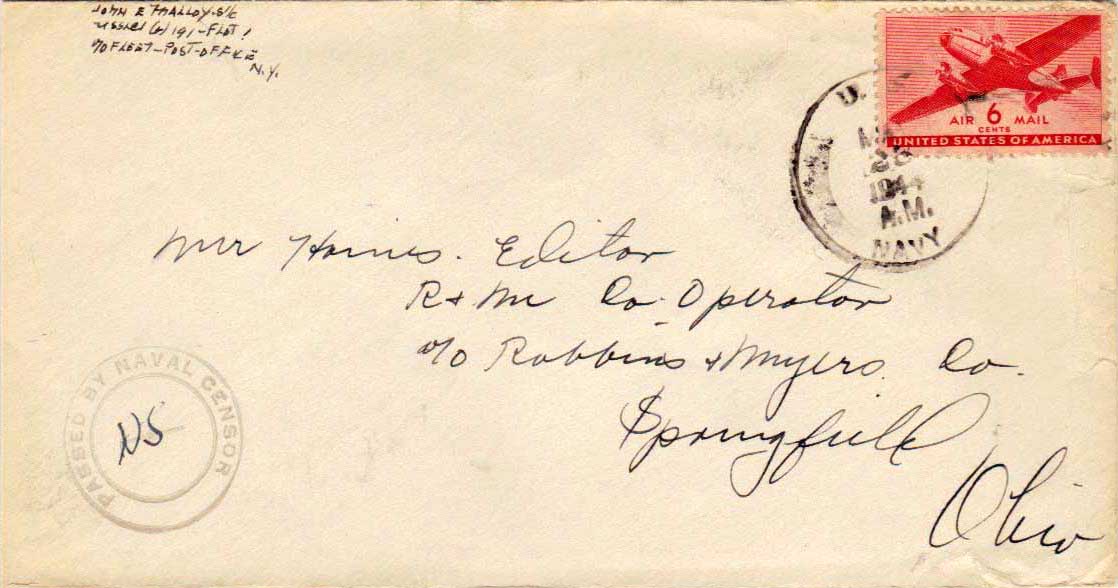 JOHN E MALLOY S1/C
USSLCI (L) 191-FLOT 1
℅ FLEET-POST-OFFICE
N.Y.
U.S.
1944
A.M.
NAVY
AIR 6 MAIL
CENTS
UNITED STATES OF AMERICA
Mr Haines. Editor
R + M Co-Operator
℅ Robbins + Myers. Co.
Springfield
Ohio
PASSED BY NAVAL CENSOR
NS